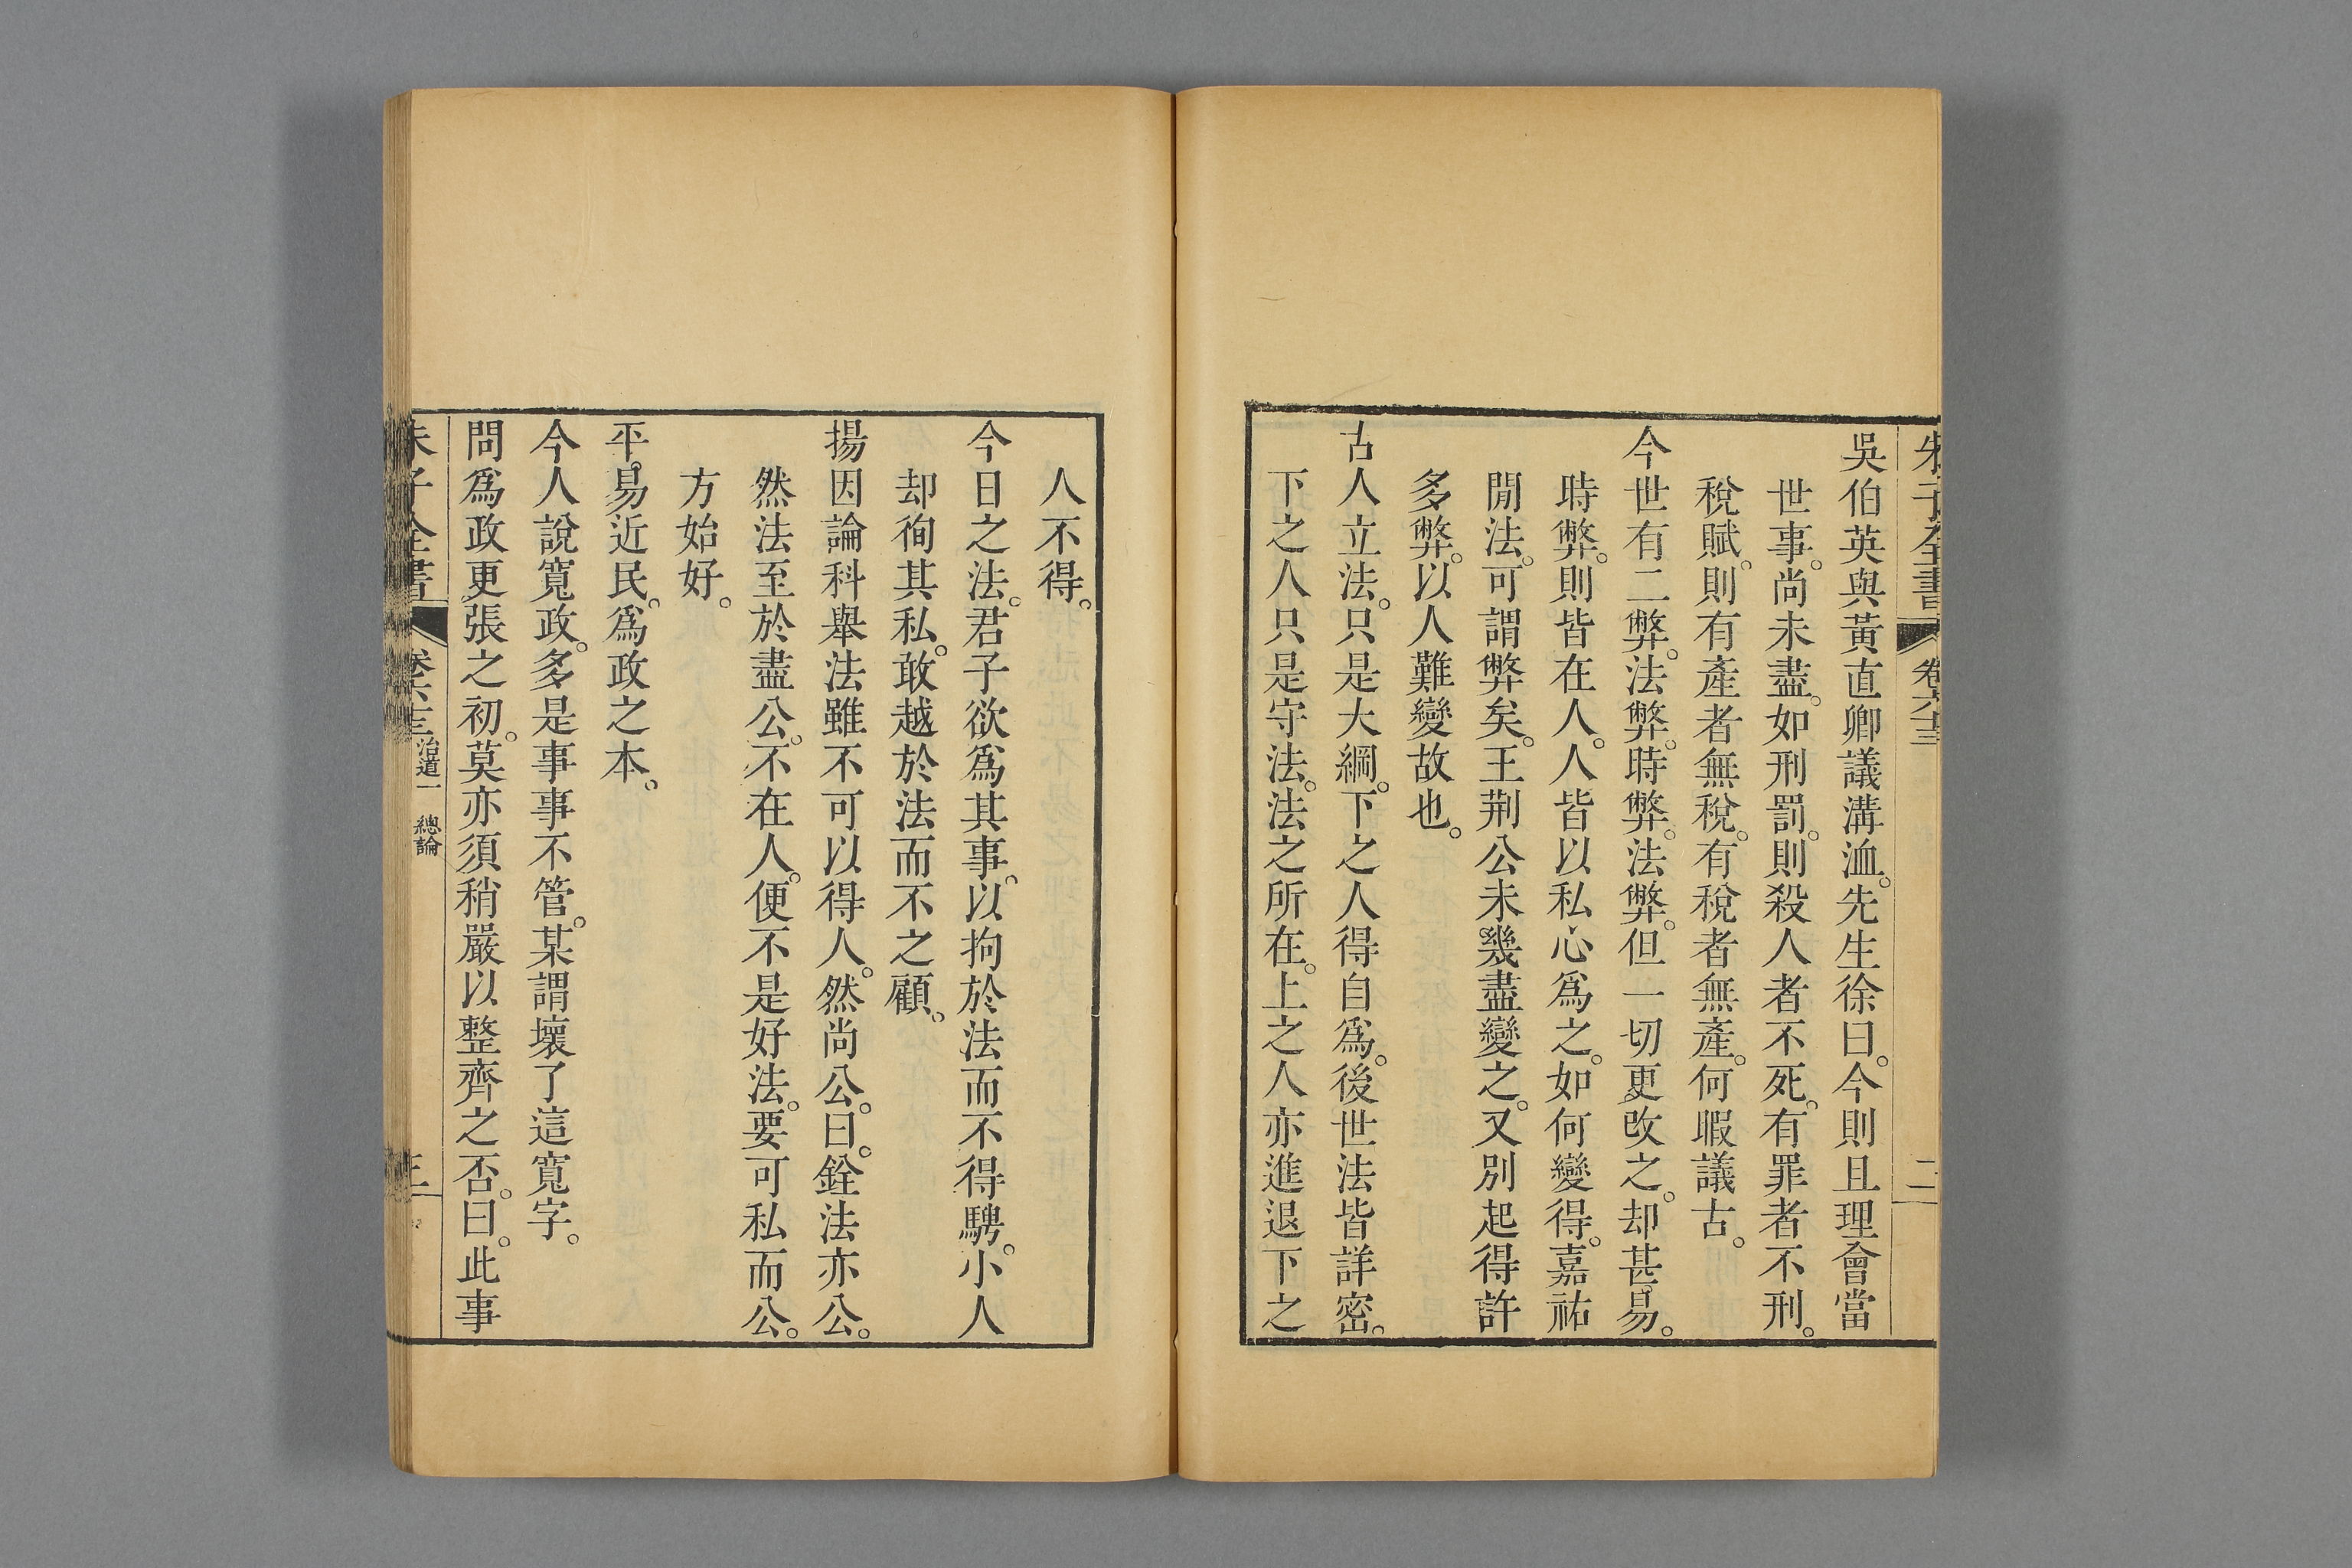 朱子全書 卷六十三 二
吳伯英與黃直卿議溝洫。先生徐曰。今則且理會當
世事。尚未盡。如刑罰。則殺人者不死。有罪者不刑。
稅賦。則有產者無稅。有稅者無產。何暇議古。
今世有二弊。法弊。時弊。法弊。但一切更改之。却甚易。
時弊。則皆在人。人皆以私心爲之。如何變得。嘉祐
閒法。可謂弊矣。王荆公未幾盡變之。又別起得許
多弊。以人難變故也。
古人立法。只是大綱。下之人得自爲。後世法皆詳密。
下之人只是守法。法之所在。上之人亦進退下之
人不得。
今日之法。君子欲爲其事。以拘於法而不得騁。小人
却徇其私。敢越於法而不之顧。
揚因論科舉法雖不可以得人。然尚公。曰。銓法亦公。
然法至於盡公。不在人。便不是好法。要可私而公。
方始好。
平易近民。爲政之本。
今人說寬政。多是事事不管。某謂壞了這寬字。
問爲政更張之初。莫亦須稍嚴以整齊之否。曰。此事
朱子全書 卷六十三 治道一 總論 三